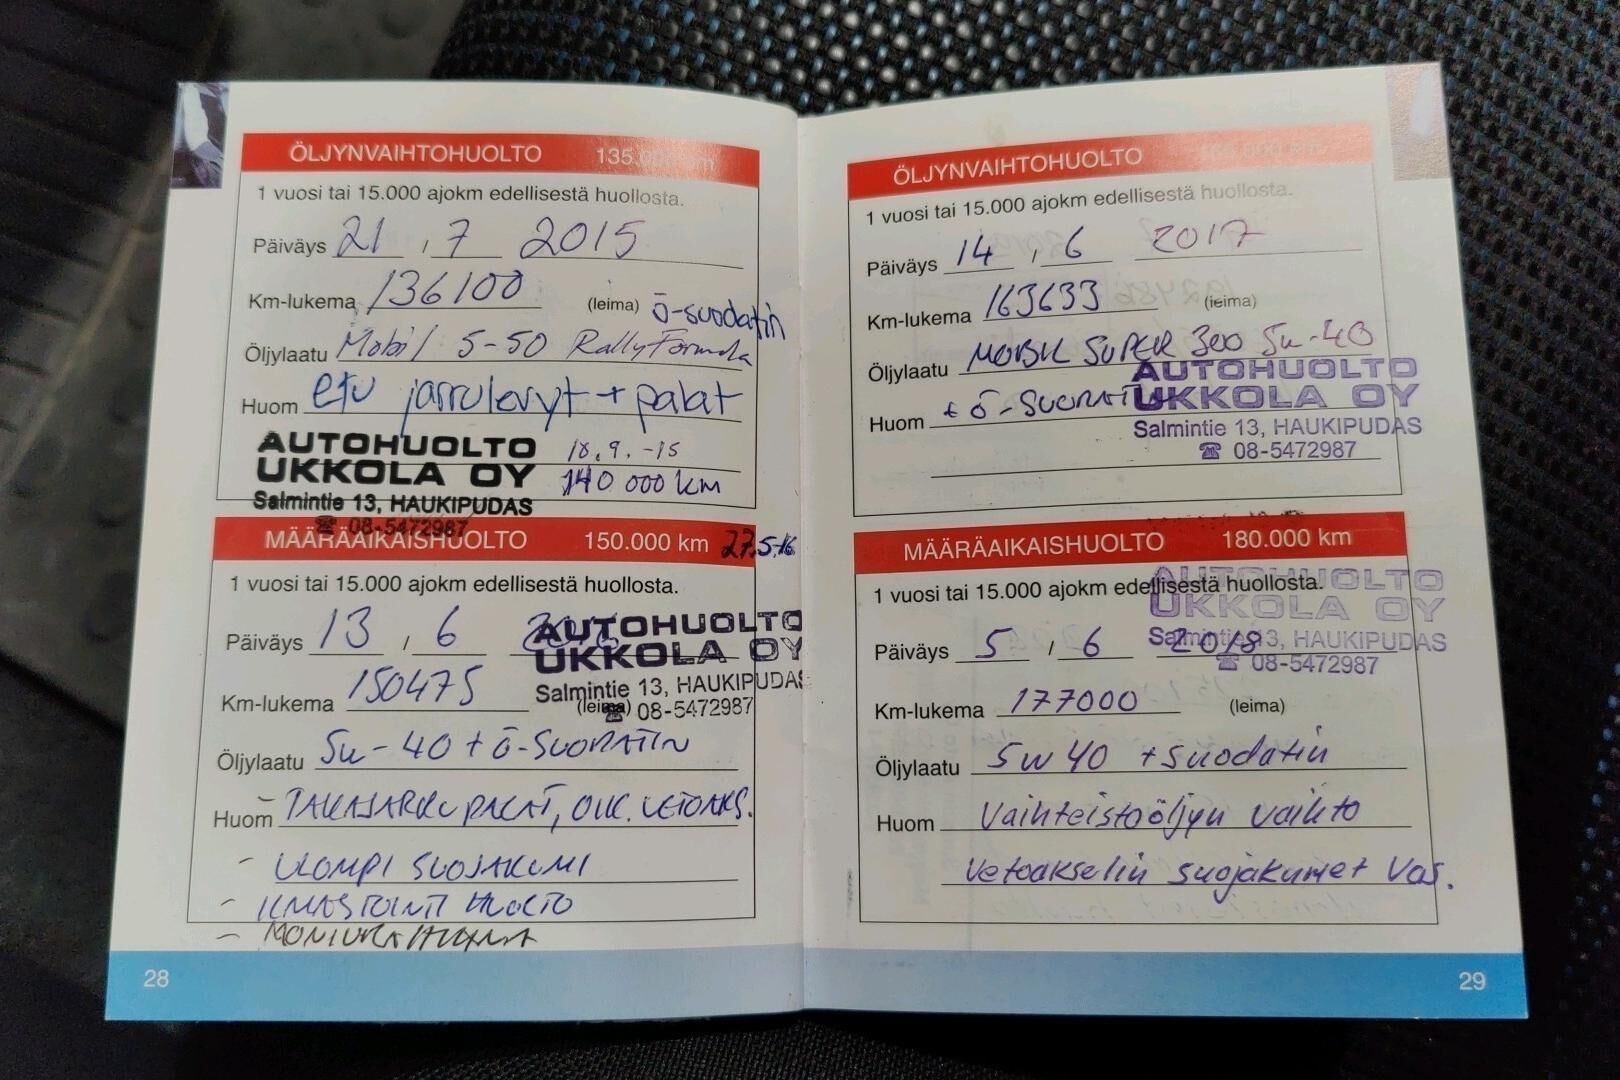 ÖLJYNVAIHTOHUOLTO 135.000 km
1 vuosi tai 15.000 ajokm edellisestä huollosta.
Päiväys 21 , 7 2015
Km-lukema 136100 (leima) ö-suodatin
Öljylaatu Mobil 5-50 Rally Formula
Huom etu jarrulevyt + palat
AUTOHUOLTO 18.9.-15
UKKOLA OY 140 000 km
Salmintie 13, HAUKIPUDAS
☎ 08-5472987
MÄÄRÄAIKAISHUOLTO 150.000 km 27.5.16
1 vuosi tai 15.000 ajokm edellisestä huollosta.
Päiväys 13 , 6
AUTOHUOLTO
UKKOLA OY
Salmintie 13, HAUKIPUDAS
☎ 08-5472987
Km-lukema 150475 (leima)
Öljylaatu 5w-40 + ö-SUODATIN
Huom - TAKAJARRUPALAT, OIK. VETOAKS.
- ULOMPI SUOJAKUMI
- ILMASTOINTI HUOLTO
- MONIURAHIHNA
28
ÖLJYNVAIHTOHUOLTO
1 vuosi tai 15.000 ajokm edellisestä huollosta.
Päiväys 14 , 6 2017
Km-lukema 163633 (leima)
Öljylaatu MOBIL SUPER 300 5w-40
Huom + ö-SUODATIN
AUTOHUOLTO
UKKOLA OY
Salmintie 13, HAUKIPUDAS
☎ 08-5472987
MÄÄRÄAIKAISHUOLTO 180.000 km
1 vuosi tai 15.000 ajokm edellisestä huollosta.
AUTOHUOLTO
UKKOLA OY
Salmintie 13, HAUKIPUDAS
☎ 08-5472987
Päiväys 5 , 6 2018
Km-lukema 177000 (leima)
Öljylaatu 5w40 + suodatin
Huom Vaihteistoöljyn vaihto
Vetoakselin suojakumet Vas.
29